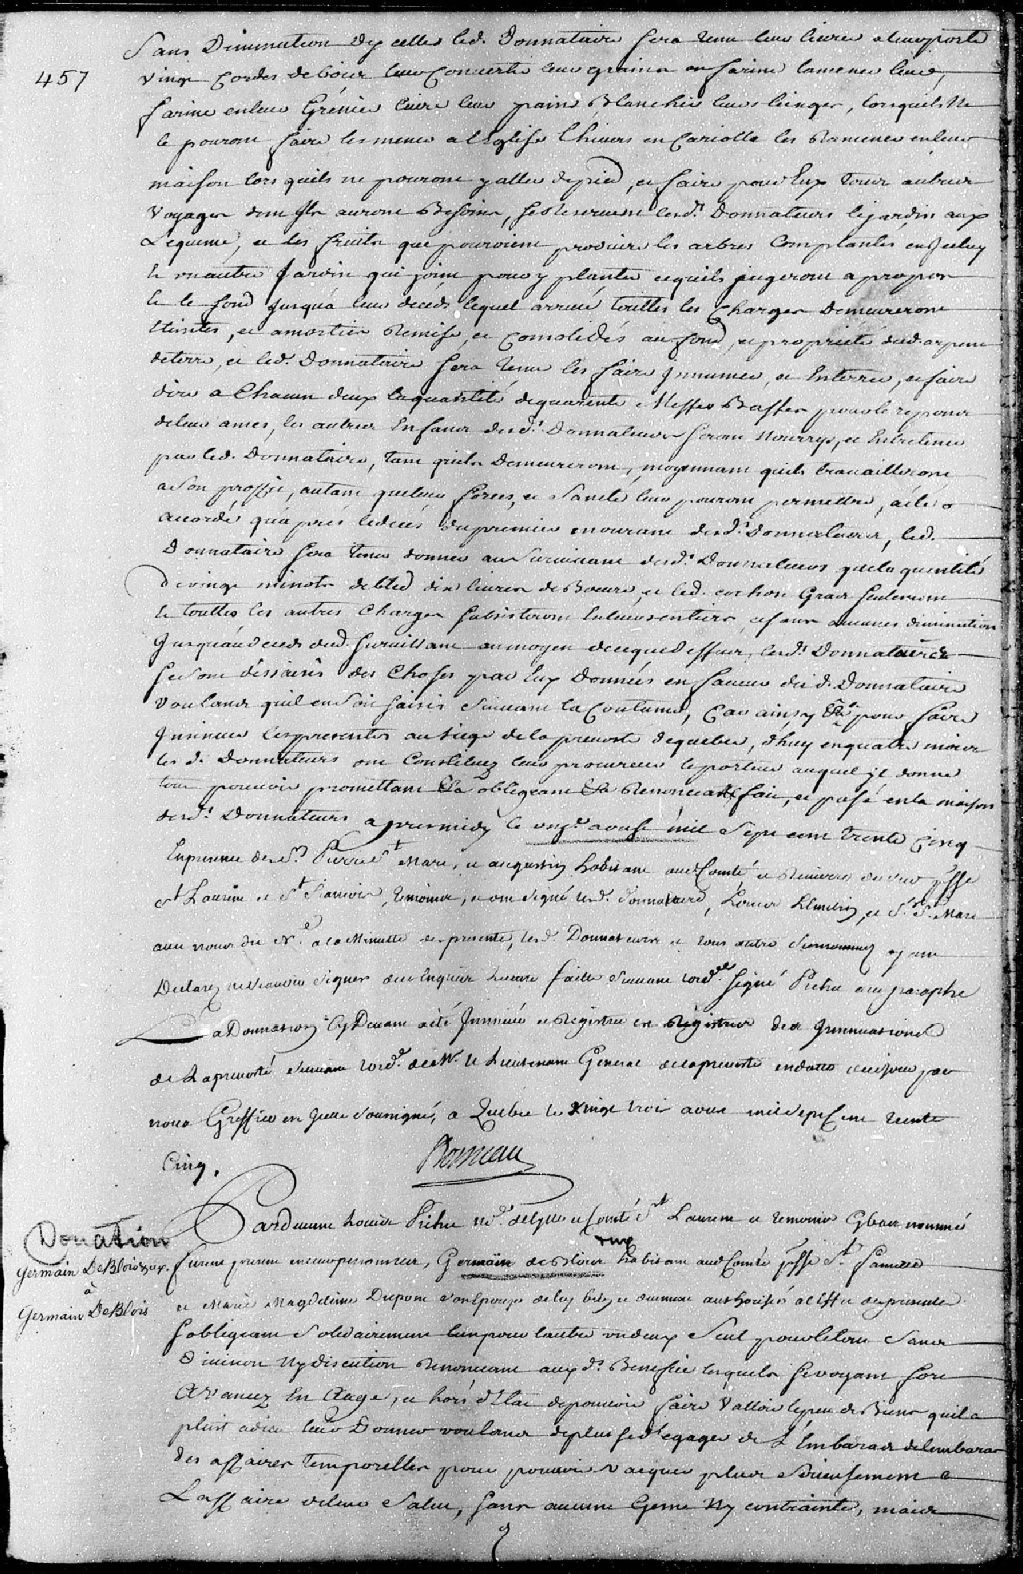 457
Sans Diminution dycelles led. Donnataire sera tenu leur livrer a leur porte
vingt cordes de bois leur Convertir leurs grains en farine lamener lad.
farine en leur Grenier cuire leur pain Blanchir leurs linges, lorsquils Ne
le pouront faire les mener a lEglise lhivers en Cariolle les Ramener en leur
maison lors quils ne pouront y aller de pied, et faire pour Eux tous autres
Voyages dont Ils auront Besoins, se Reservent lesd. Donnateurs le jardin aux
Legume, et les fruits que pouroient produire les arbres Complantés en Jceluy
et un autre Jardin qui joint pour y planter ce quils jugeront a propos
et le fond jusqu'a leur décéds lequel arrivé touttes les Charges Demeureront
Eteintes, et amorties Remise, et Consolidés au fond, et propriété dud. arpent
de terre, et led. Donnataire sera tenu les faire Jnnumer, et Enterrer, et faire
dire a Chacun deux la quantité de quarente Messes Basses pour le repos
de leur ames, les autres Enfans desd. Donnateurs seront Nourrys, et Entretenus
par led. Donnataire, tant quils Demeureront, moyennant quils travailleront
a Son proffit, autant que leurs forces, et Santé leur pouront permettre,
acordé qu'a prés ledécés du premier mourant desd. Donnateurs, led.
Donnataire sera tenu donner au Survivant desd. Donnateurs que la quantité
de vingt minots de bled dix livres de Beure, et led. cochon Gras seulement
et touttes les autres Charges Subsisteront En leur entier, et sans aucunes diminution
Jusquau deceds dud. Survivant au moyen de ce que dessus, lesd. Donnateurs
se sont déssaisis des Choses par Eux Données en faveur du d. Donnataire
Voulant quil en Soit Saisis Suivant la Coutume, Car ainsy &a. pour faire
Jnsinuer les presentes au Siege de la prevosté de quebec, d'huy en quatre mois
les d. Donnateurs ont Constituez leur procureur le porteur auquel jl donne
tout pouvoir promettant &a obligeant &a Renonceant fait, et passé en la maison
desd. Donnateurs apres midy le aoust mil Sept cent trente Cinq
En presence de Sr. Pierre St Marc, et augustin habitant aud. Comté
St Laurent et St francois, temoins, et ont signé led. Donnataire, et Sr. St. Marc
avec nous du Nre. a la Minutte des presente, lesd. Donnateurs et tous autre Surnommez ayant
Declarez ne Scavoir Signer de ce Enquis lecture faitte Suivant lord.ce Signé Pichet avec paraphe
La Donnation Cy Devant a été Jnsinuée et Registrée és Registres des Jnsinuations
de La prevosté Suivant lord.ce de Mr. le Lieutenant General de la prevosté en datte de ce jour par
nous Greffier en Jcelle Soussigné, a Quebec le vingt trois aoust mil sept Cent trente
Cinq.
Boisseau
Donation
Germain DeBlois
à
Germain DeBlois
Pardevant Louis Pichet nre. de lisle et Comté St Laurent et temoins Cy bas nommé
furent present en leur personnes, Germain deblois habitant aud. Comté psse Ste. famille
et Marie Magdeleine Dupont Son Epouse de luy bien et duement authorisés a leffet des presentes
Sobligeant Solidairement lun pour lautre un deux Seul pour le tout Sans
Division Ny discution Renonceant aux d. Benefice lesquels se voyant fort
Avancez En Aage, et hors d'Etat de pouvoir faire Valloir le peu de Biens quil a
plut a dieu leur Donner voulant de plus se dégager de L'Embaras de lembaras
des affaires temporelles pour pouvoir vacquer plus Serieusement a
Laffaire de leur Salut, sans aucune Gesne Ny contrainte, mais